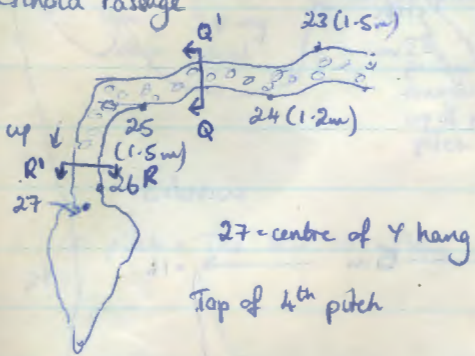 Passage
Q'
23 (1.5m)
Q
24 (1.2m)
25
(1.5m)
up
R'
R
26
27
27 = centre of Y hang
Top of 4th pitch